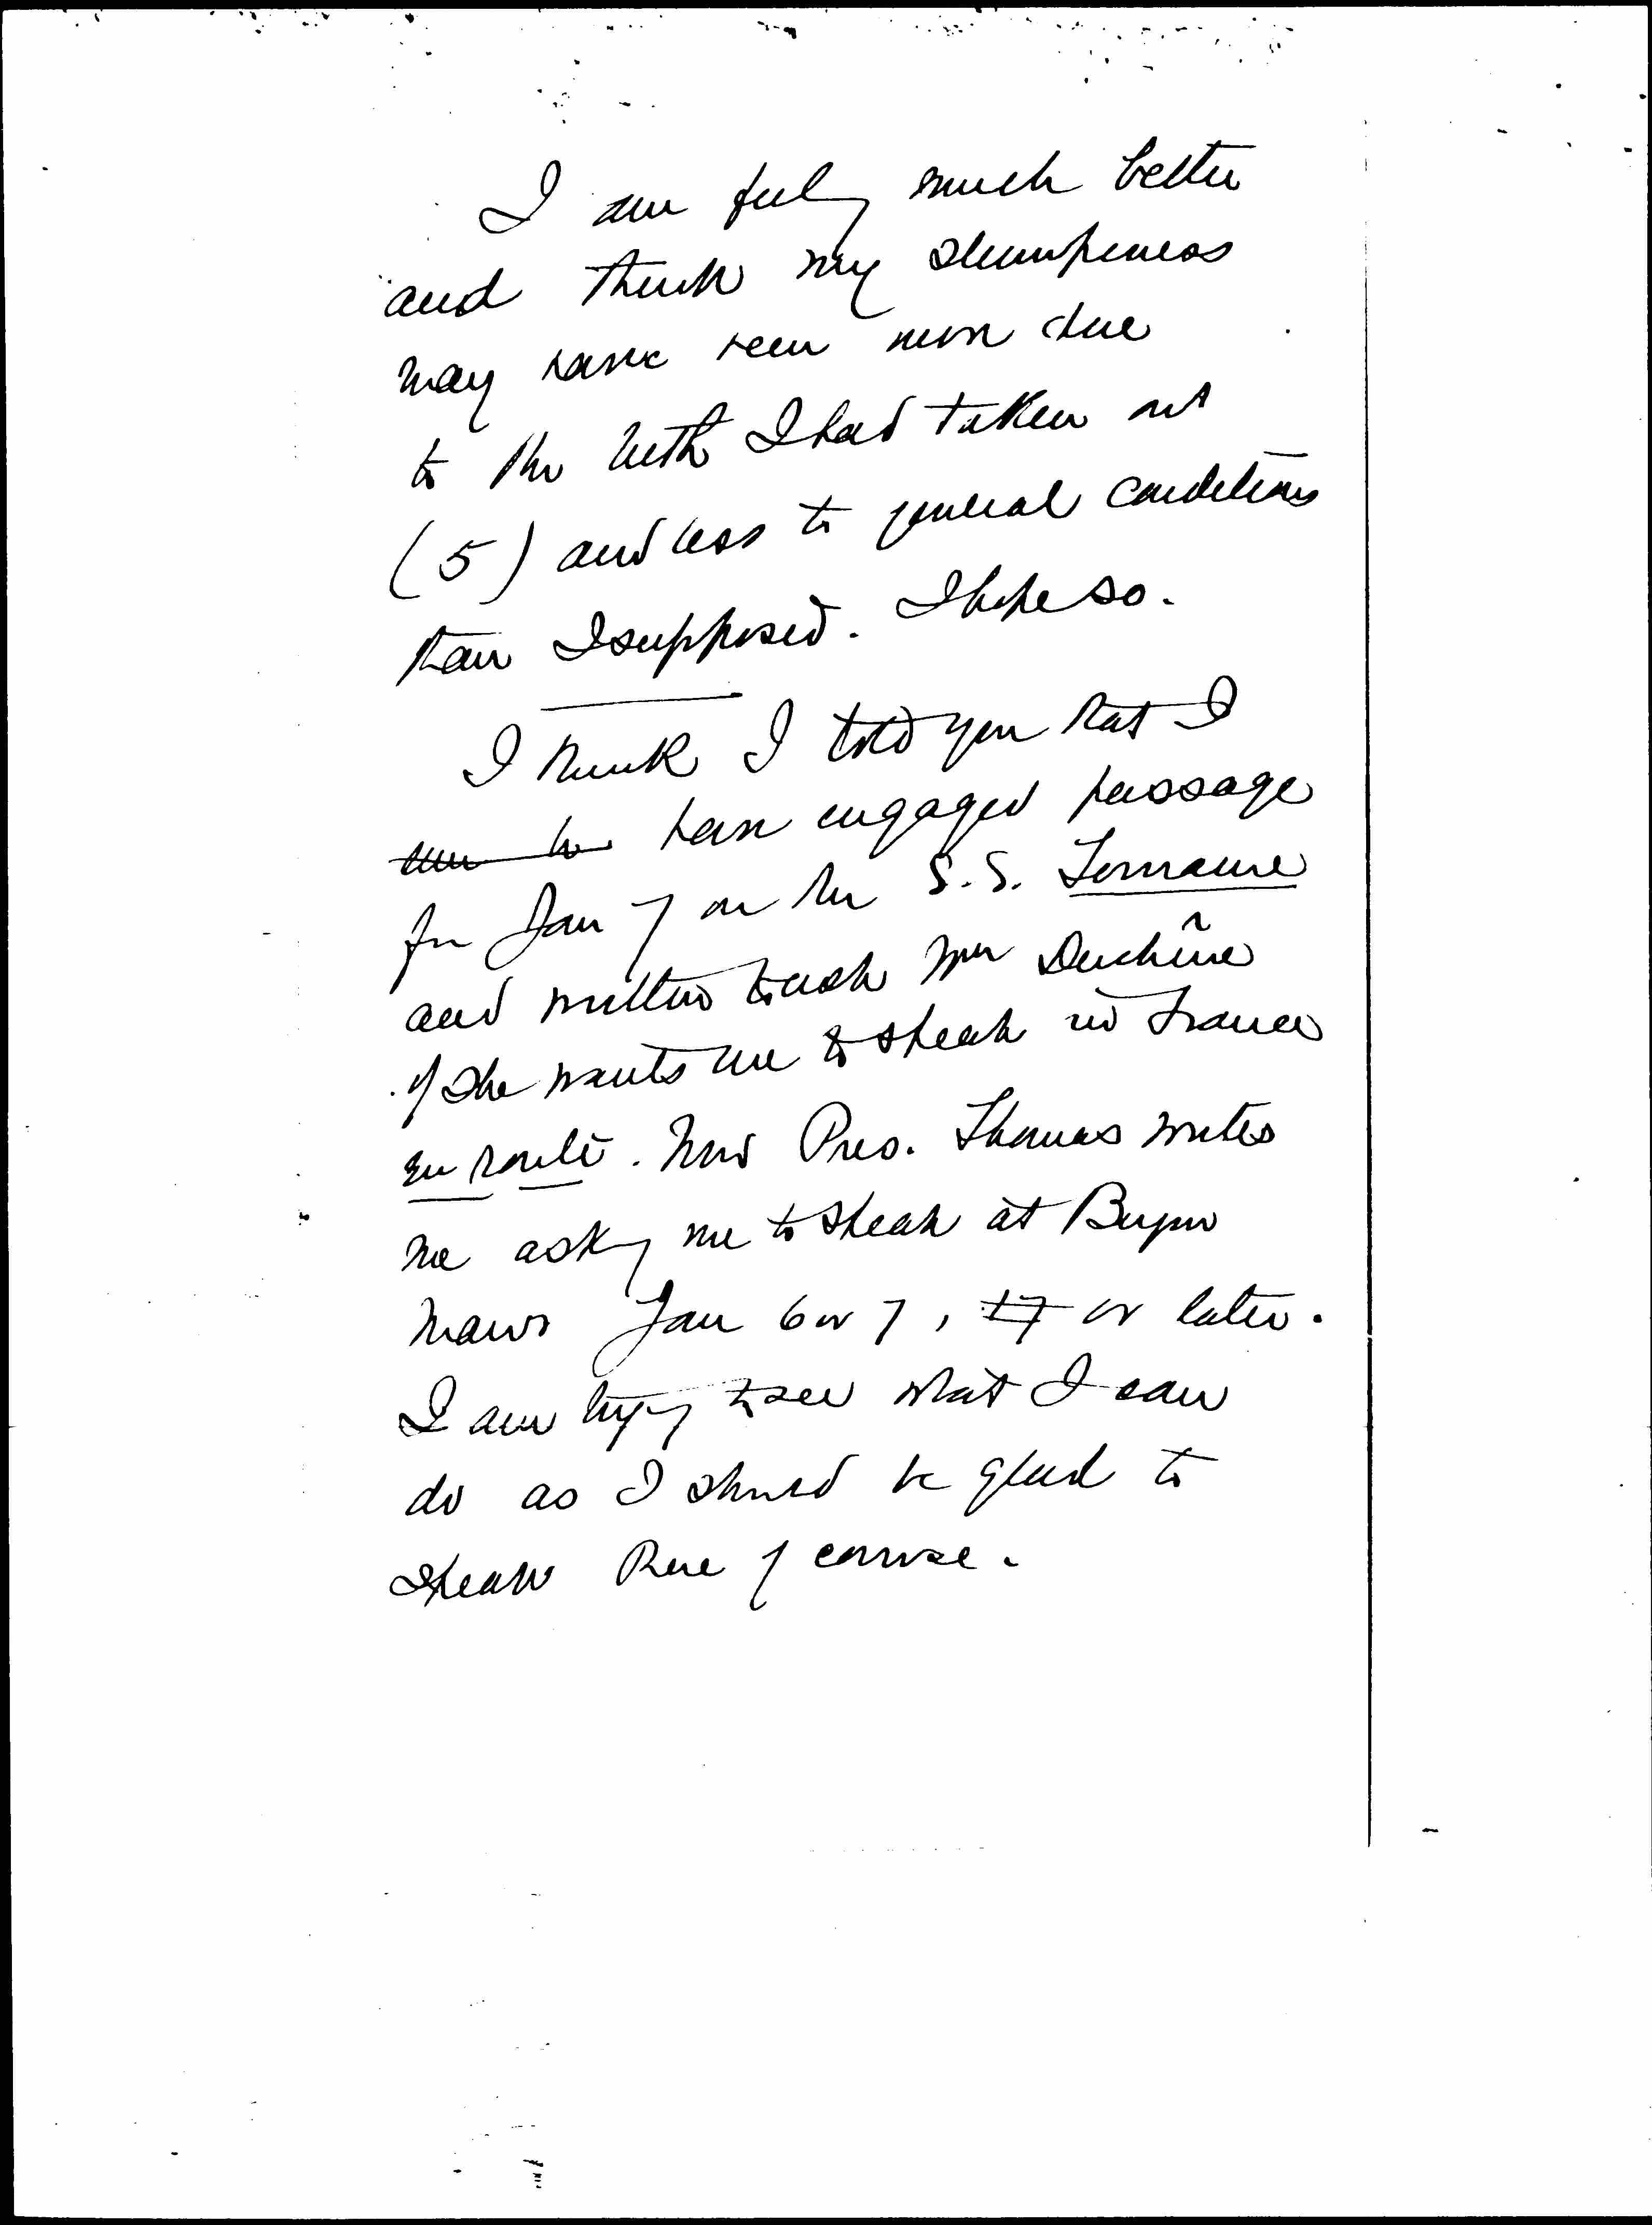 I am feeling much better
and think my slumpiness
may have been more due
to the teeth I had taken out
(5) and less to general conditions
than I supposed. I hope so.
I think I told you that I
have engaged passage
for Jan 7 on the S.S. Lorraine
and written to ask Mme Duchêne
if she wants me to speak in France
en route. Now Pres. Thomas writes
me asking me to speak at Bryn
Mawr Jan 6 or 7, 17 or later.
I am trying to see what I can
do as I should be glad to
speak there of course.